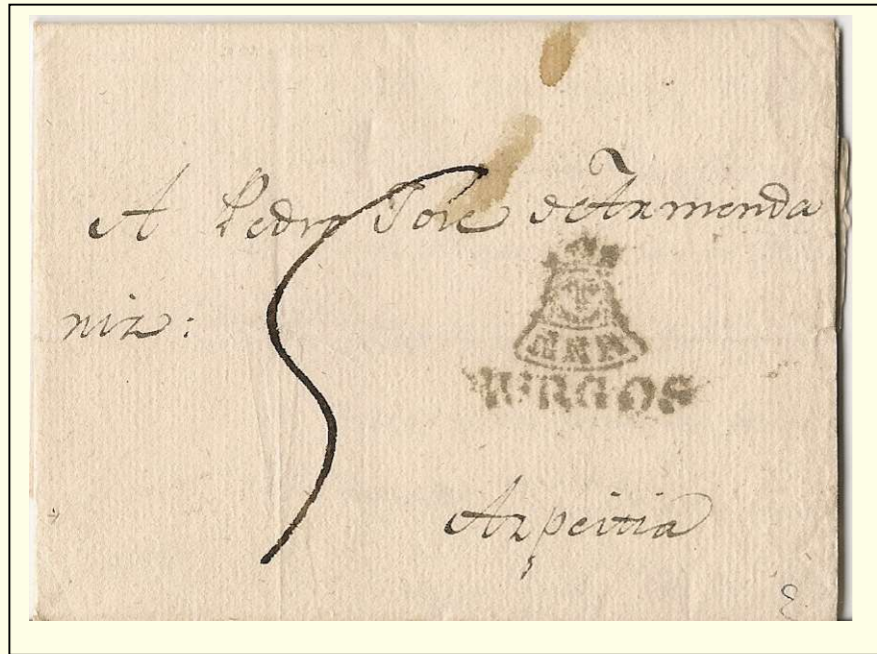 A Pedro Jose de Armenda
niz:
BURGOS
Azpeitia